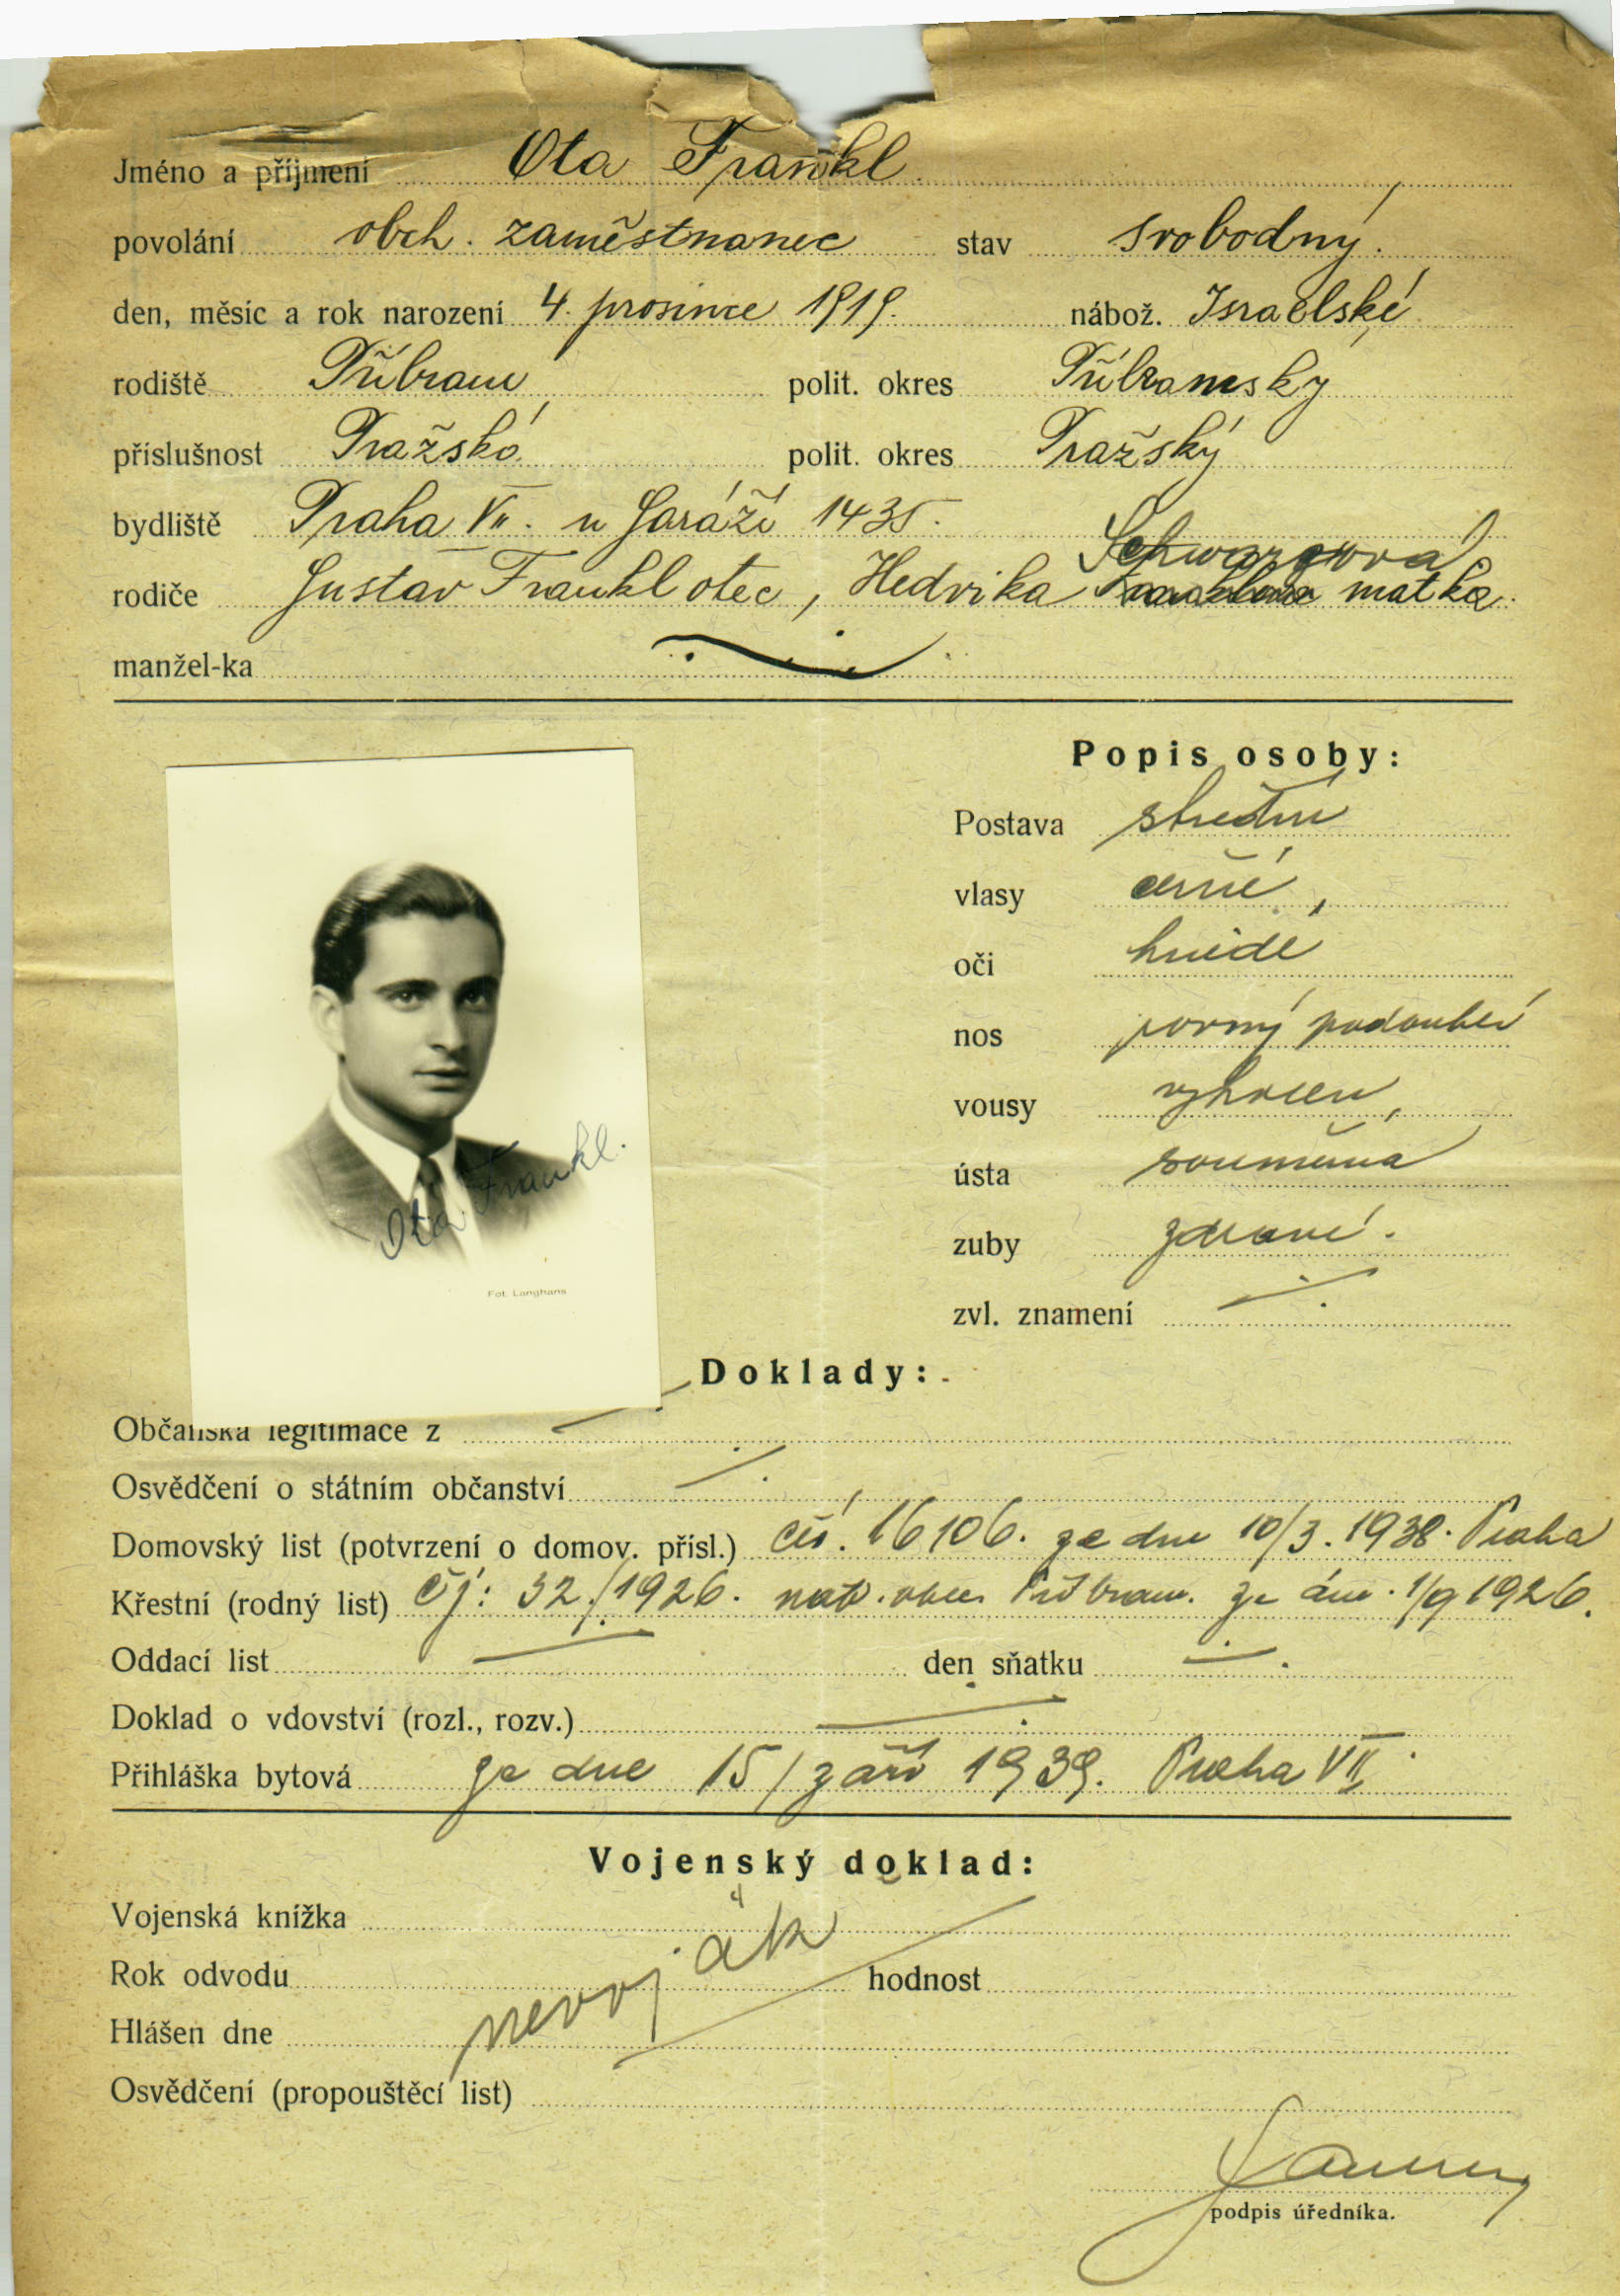 Jméno a příjmení Ota Frankl.
povolání obch. zaměstnanec stav svobodný.
den, měsíc a rok narození 4. prosince 1919. nábož. Israelské
rodiště Příbram polit. okres Příbramský
příslušnost Pražská polit. okres Pražský
bydliště Praha VII. u Garáží 1435.
Schwarzová
rodiče Gustav Frankl otec, Hedvika Franklova matka.
manžel-ka
Popis osoby:
Postava střední
vlasy černé,
oči hnědé
nos rovný
vousy vyholen,
ústa souměrná
zuby zdravé.
zvl. znamení
Ota Frankl.
Fot. Langhans
Doklady:
Občanská legitimace z
Osvědčení o státním občanství
Domovský list (potvrzení o domov. přísl.) čís. 16106. ze dne 10/3. 1938. Praha
Křestní (rodný list) Čj: 32./1926. nab. obec Příbram. ze dne. 1/9 1926.
Oddací list den sňatku
Doklad o vdovství (rozl., rozv.)
Přihláška bytová ze dne 15/září 1939. Praha VII.
Vojenský doklad:
Vojenská knížka
nevoják
Rok odvodu hodnost
Hlášen dne
Osvědčení (propouštěcí list)
podpis úředníka.